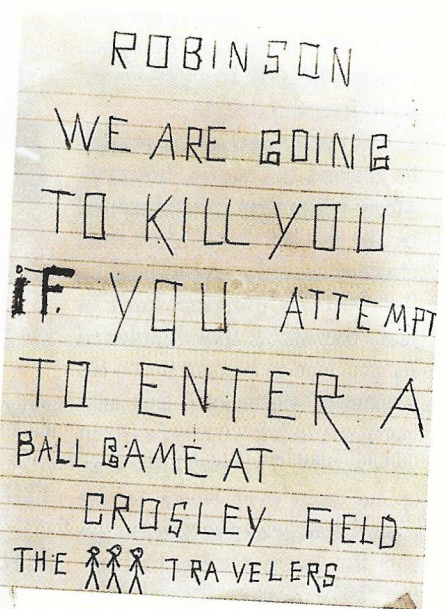 ROBINSON
WE ARE GOING
TO KILL YOU
iF. YOU ATTEMPT
TO ENTER A
BALL GAME AT
CROSLEY FIELD
THE TRAVELERS